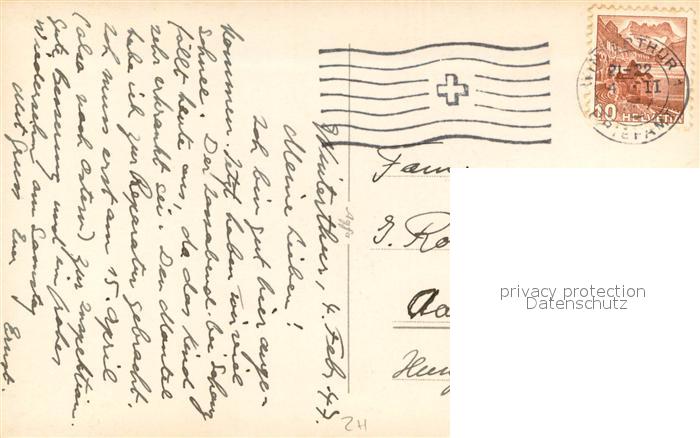 Winterthur, 4. Feb. 49.
Meine Lieben!
Ich bin gut hier ange-
kommen. Jetzt haben wir viel
Schnee. Der Jassabend bei
fällt heute aus, da das Kind
erkrankt sei. Den Mantel
habe ich zur Reparatur gebracht.
Ich muss erst am 15. April
(also nach Ostern) zur Inspektion.
Gute Besserung und ein frohes
Wiedersehen am Samstag
Gruss Euer
Ernst.
Fam
G. Ro
Aa
2H
WINTERTHUR 1
II
BRIEFAN
10 HELVETIA
privacy protection
Datenschutz